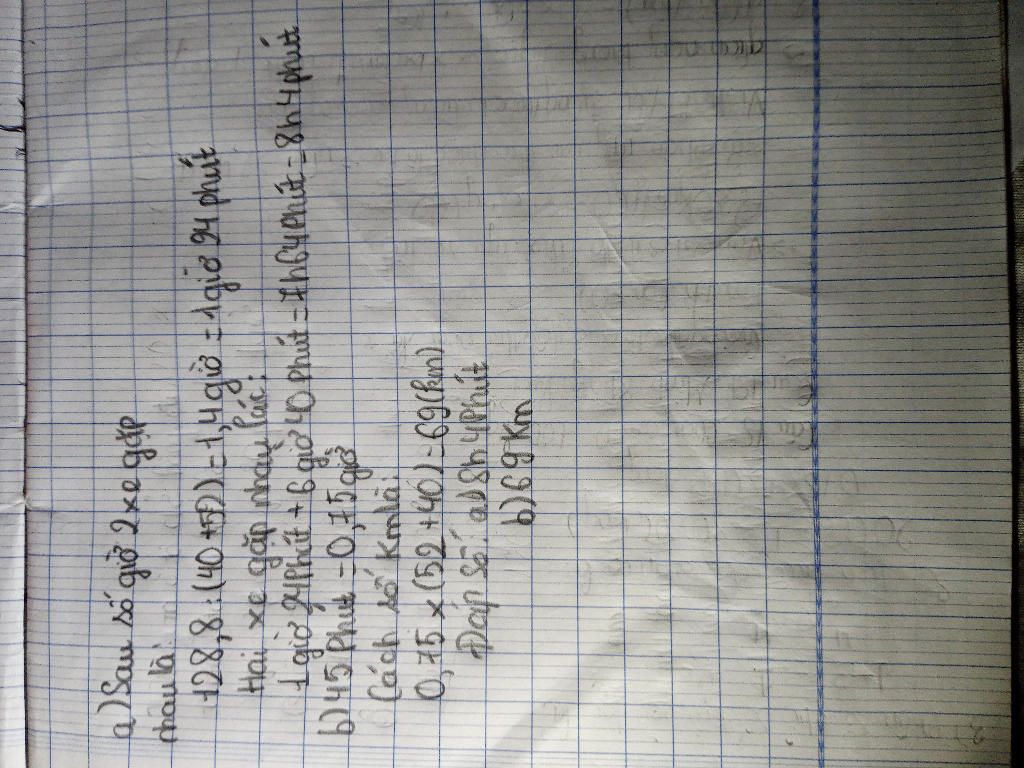 a) Sau số giờ 2 xe gặp
nhau là:
128,8 : (40 + 52) = 1,4 giờ = 1 giờ 24 phút
Hai xe gặp nhau lúc:
1 giờ 24 phút + 6 giờ 40 phút = 7h64 phút = 8h4 phút
b) 45 phút = 0,75 giờ
Cách số Km là:
0,75 x (52 + 40) = 69 (km)
Đáp số: a) 8h 4 phút
b) 69 Km